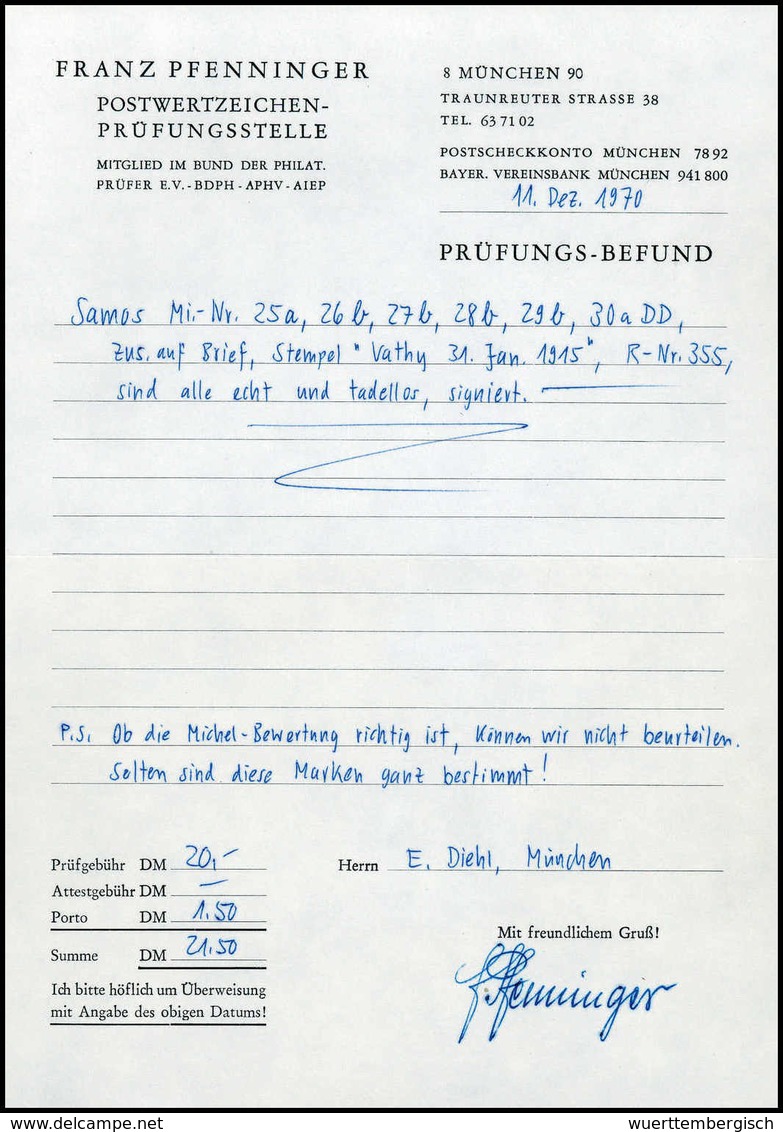 FRANZ PFENNINGER
POSTWERTZEICHEN-
PRÜFUNGSSTELLE
MITGLIED IM BUND DER PHILAT.
PRÜFER E.V. - BDPH - APHV - AIEP
8 MÜNCHEN 90
TRAUNREUTER STRASSE 38
TEL. 63 71 02
POSTSCHECKKONTO MÜNCHEN 78 92
BAYER. VEREINSBANK MÜNCHEN 941 800
11. Dez. 1970
PRÜFUNGS-BEFUND
Samos Mi.-Nr. 25a, 26b, 27b, 28b, 29b, 30a DD,
zus. auf Brief, Stempel "Vathy 31. Jan. 1915", R-Nr. 355,
sind alle echt und tadellos, signiert.
P.S. Ob die Michel-Bewertung richtig ist, können wir nicht beurteilen.
Selten sind diese Marken ganz bestimmt!
Prüfgebühr DM 20,-
Attestgebühr DM —
Porto DM 1.50
Summe DM 21.50
Ich bitte höflich um Überweisung
mit Angabe des obigen Datums!
Herrn E. Diehl, München
Mit freundlichem Gruß!
F. Pfenninger
www.delcampe.net
wuerttembergisch